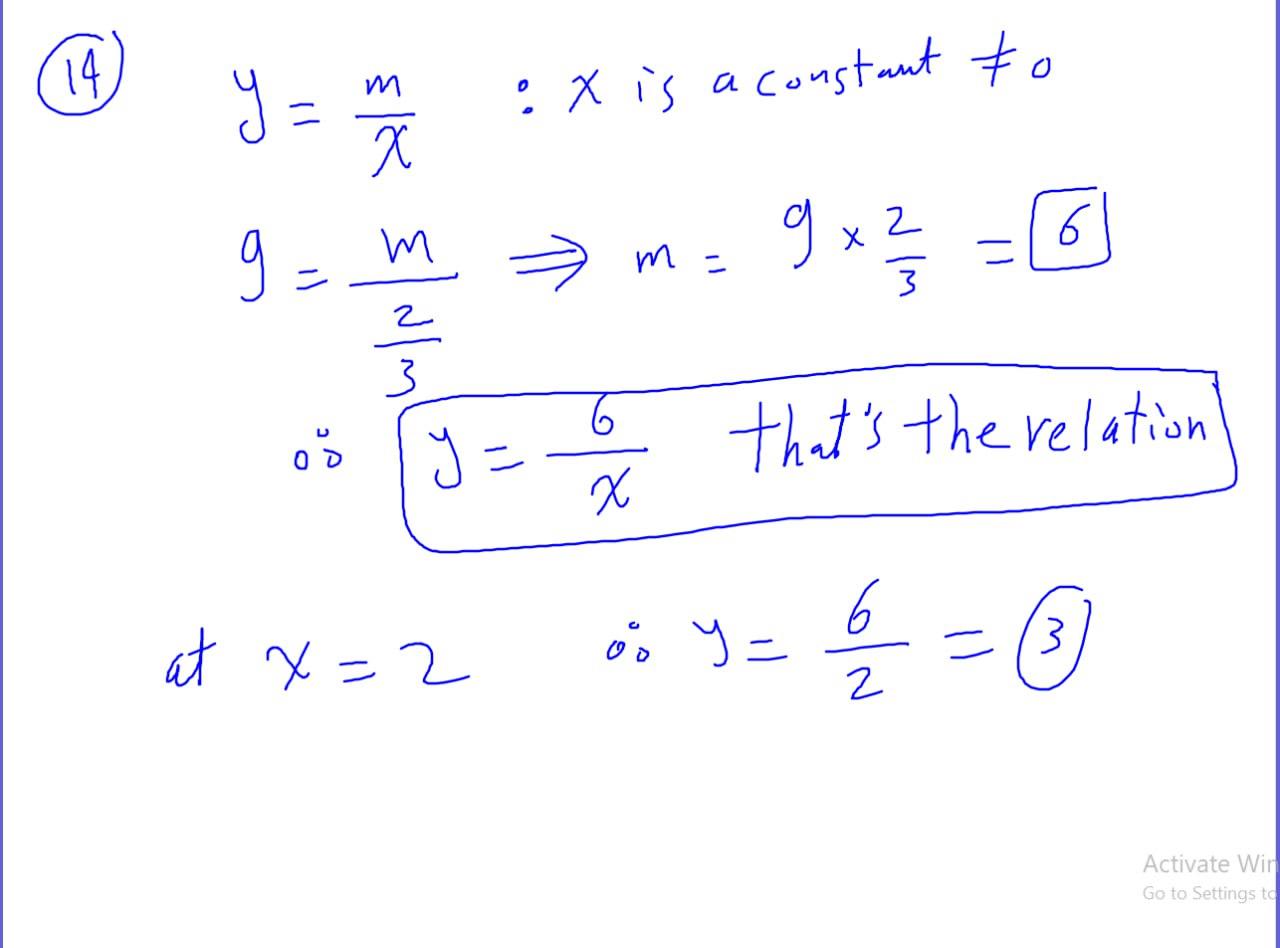 14
y = m/x : x is a constant ≠ 0
9 = m/(2/3) ⇒ m = 9 × 2/3 = 6
∴ y = 6/x that's the relation
at x = 2 ∴ y = 6/2 = 3
Activate Win
Go to Settings to